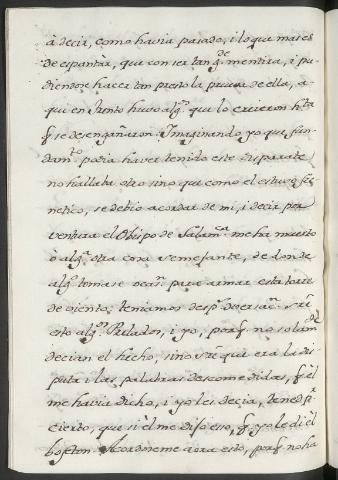 à decir, como havia pasado, i lo que mas es
de espantàr, que con ser tan g.de mentira, i pu
diendose hacer tan presto la prueva de ella, a-
qui en Trento huvo alg.s que lo creieron h.ta
q̃ se desengañaron. Imaginando yo que fun-
dam.to podia haver tenido este disparate
no hallaba otro sino que como el estuvo fre
netico, se debio acordar de mi, i decir por
ventura el Obispo de Salam.ca me ha muerto
ò alg.a otra cosa semejante, de donde
alg.s tomase ocas.n para armar esta torre
de viento; teniamos desp.s Diversac. sre
esto alg.s Prelados, i yo, porq̃ no solam.te
decian el hecho, sino sre que era la dis-
puta i las palabras descomedidas, q̃ èl
me havia dicho, i yo les decia, tened p.r
cierto, que si èl me dijo esso, q̃ yo le di el
bofeton. Acordoneme aora esto, porq̃ no ha